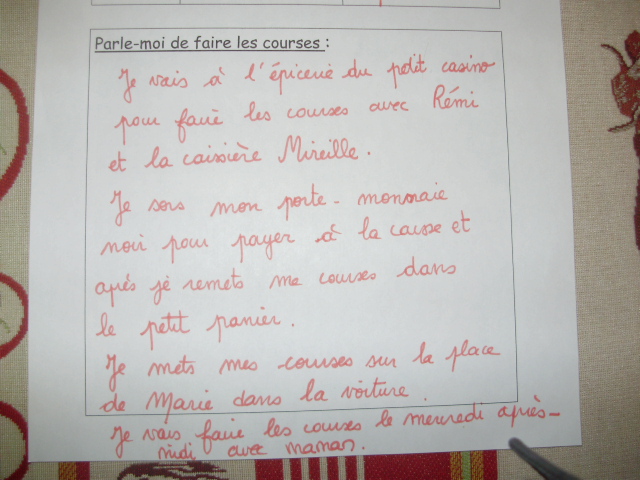 Parle-moi de faire les courses :
Je vais à l'épicerie du petit casino
pour faire les courses avec Rémi
et la caissière Mireille.
Je sors mon porte-monnaie
noir pour payer à la caisse et
après je remets me courses dans
le petit panier.
Je mets mes courses sur la place
de Marie dans la voiture.
Je vais faire les courses le mercredi après-
midi avec maman.